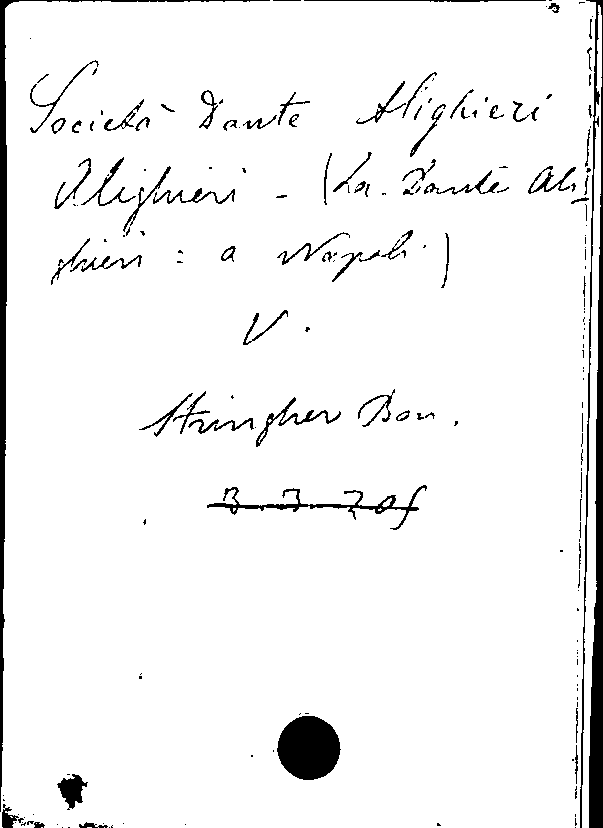 Società Dante Alighieri
Alighieri - (La Dante Ali-
ghieri : a Napoli.)
V.
Stringher Bon.
3.3.20f